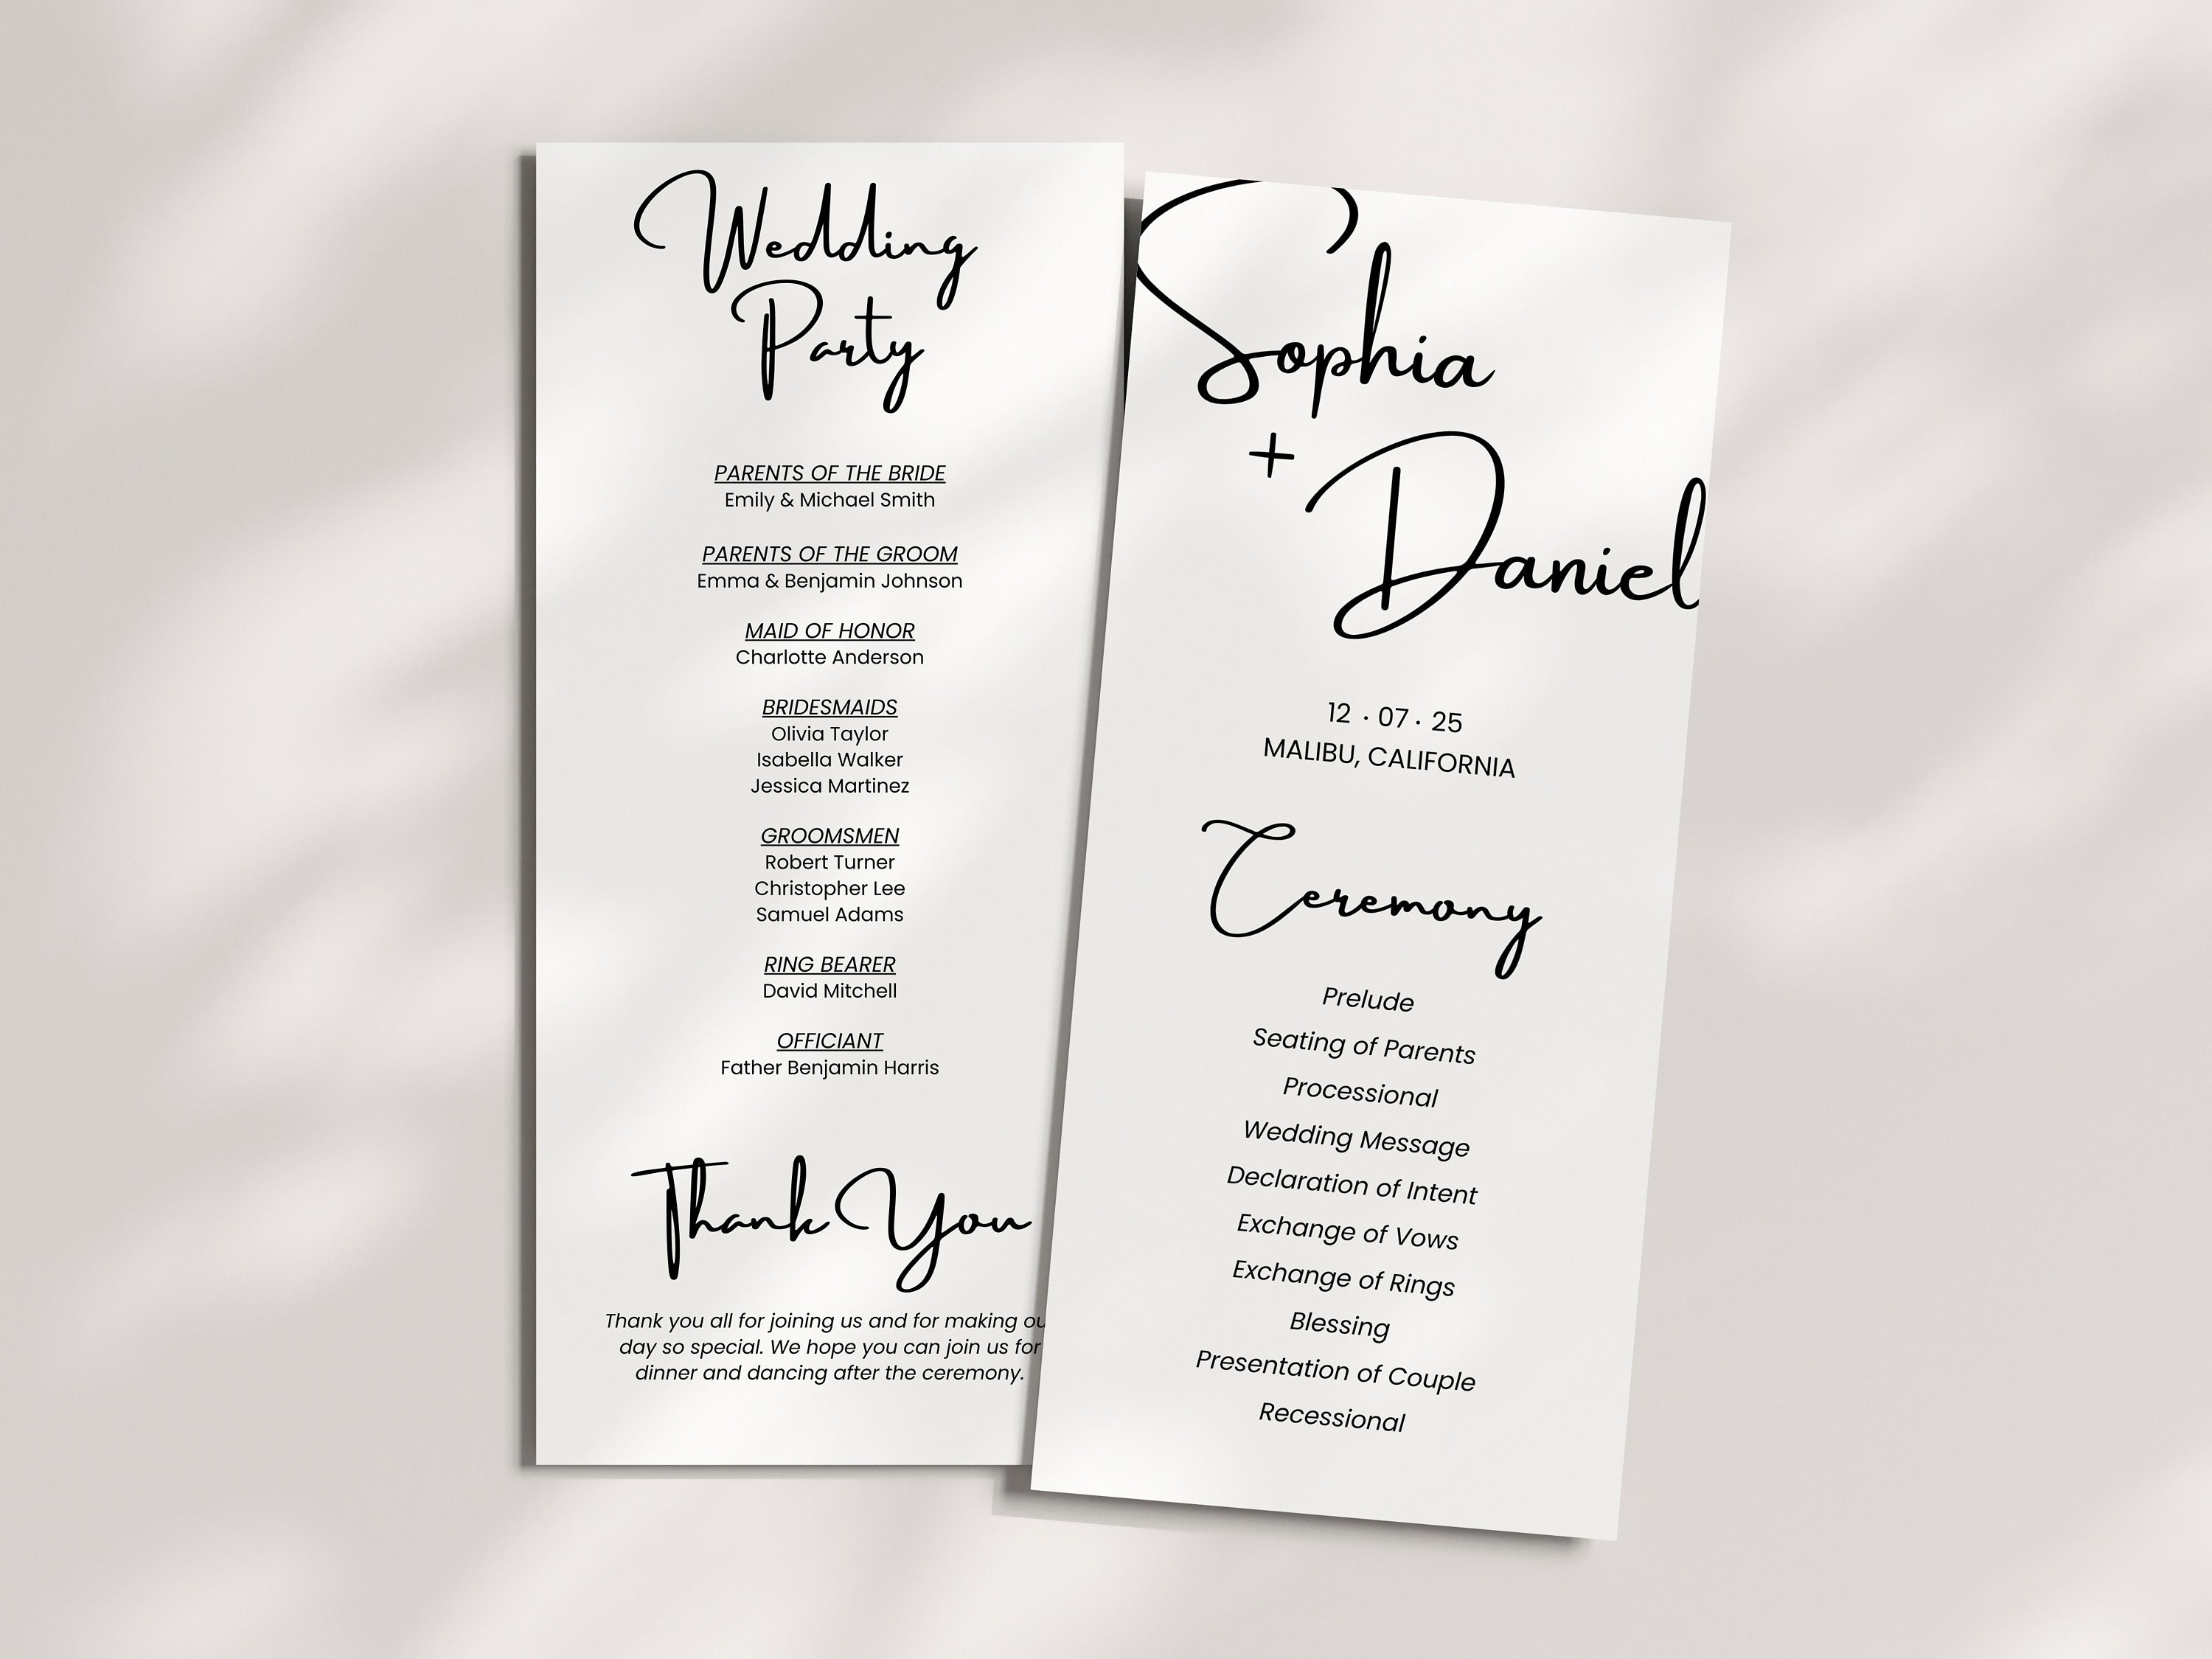 Wedding
Party
PARENTS OF THE BRIDE
Emily & Michael Smith
PARENTS OF THE GROOM
Emma & Benjamin Johnson
MAID OF HONOR
Charlotte Anderson
BRIDESMAIDS
Olivia Taylor
Isabella Walker
Jessica Martinez
GROOMSMEN
Robert Turner
Christopher Lee
Samuel Adams
RING BEARER
David Mitchell
OFFICIANT
Father Benjamin Harris
Thank You
Thank you all for joining us and for making
day so special. We hope you can join us for
dinner and dancing after the ceremony.
Sophia
+
Daniel
12 · 07 · 25
MALIBU, CALIFORNIA
Ceremony
Prelude
Seating of Parents
Processional
Wedding Message
Declaration of Intent
Exchange of Vows
Exchange of Rings
Blessing
Presentation of Couple
Recessional